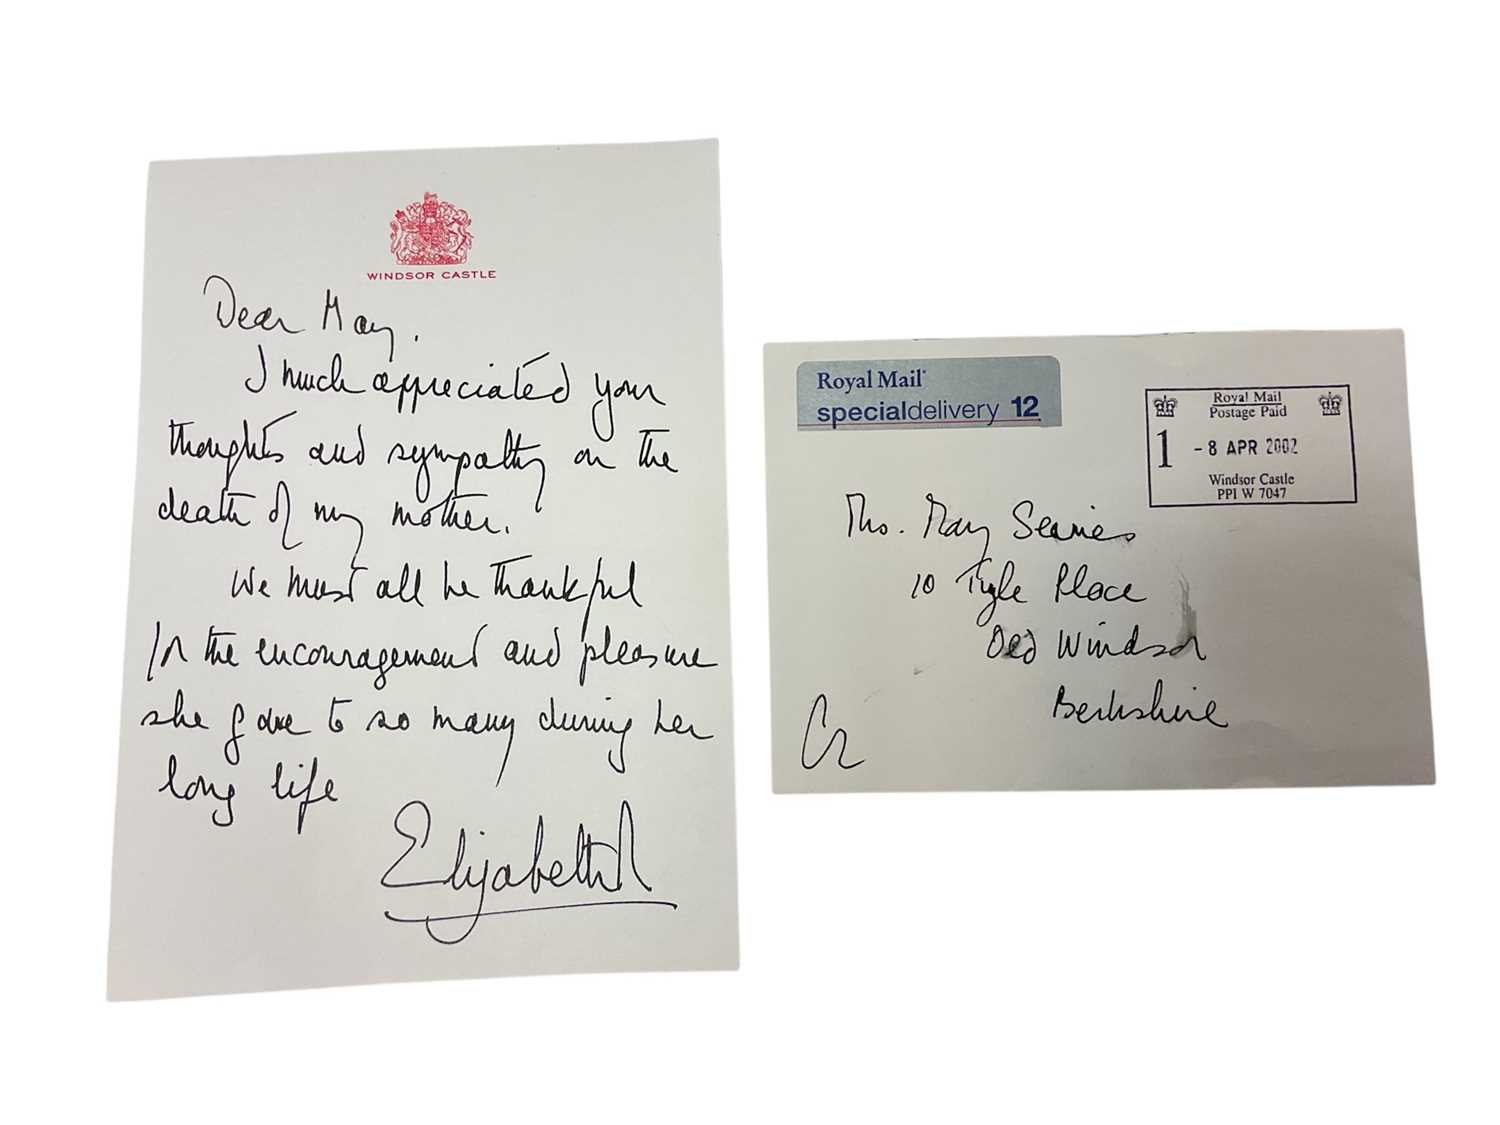 WINDSOR CASTLE
Dear May,
I much appreciated your
thoughts and sympathy on the
death of my mother.
We must all be thankful
for the encouragement and pleasure
she gave to so many during her
long life
Elizabeth R
Royal Mail
specialdelivery 12
Royal Mail
Postage Paid
1 - 8 APR 2002
Windsor Castle
PPI W 7047
Mrs. May
10 Place
Old Windsor
Berkshire